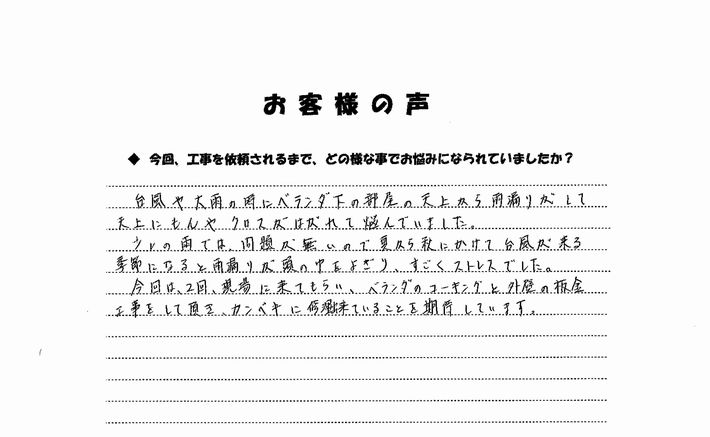 お客様の声
◆ 今回、工事を依頼されるまで、どの様な事でお悩みになられていましたか？
台風や大雨の時にベランダ下の部屋の天上から雨漏りがして
天上にもんやクロスがはがれて悩んでいました。
少しの雨では、問題が無いので夏から秋にかけて台風が来る
季節になると雨漏りが頭の中をよぎり、すごくストレスでした。
今回は、2回、現場に来てもらい、ベランダのコーキングと外壁の板金
工事をして頂き、カンペキに修理出来ていることを期待しています。